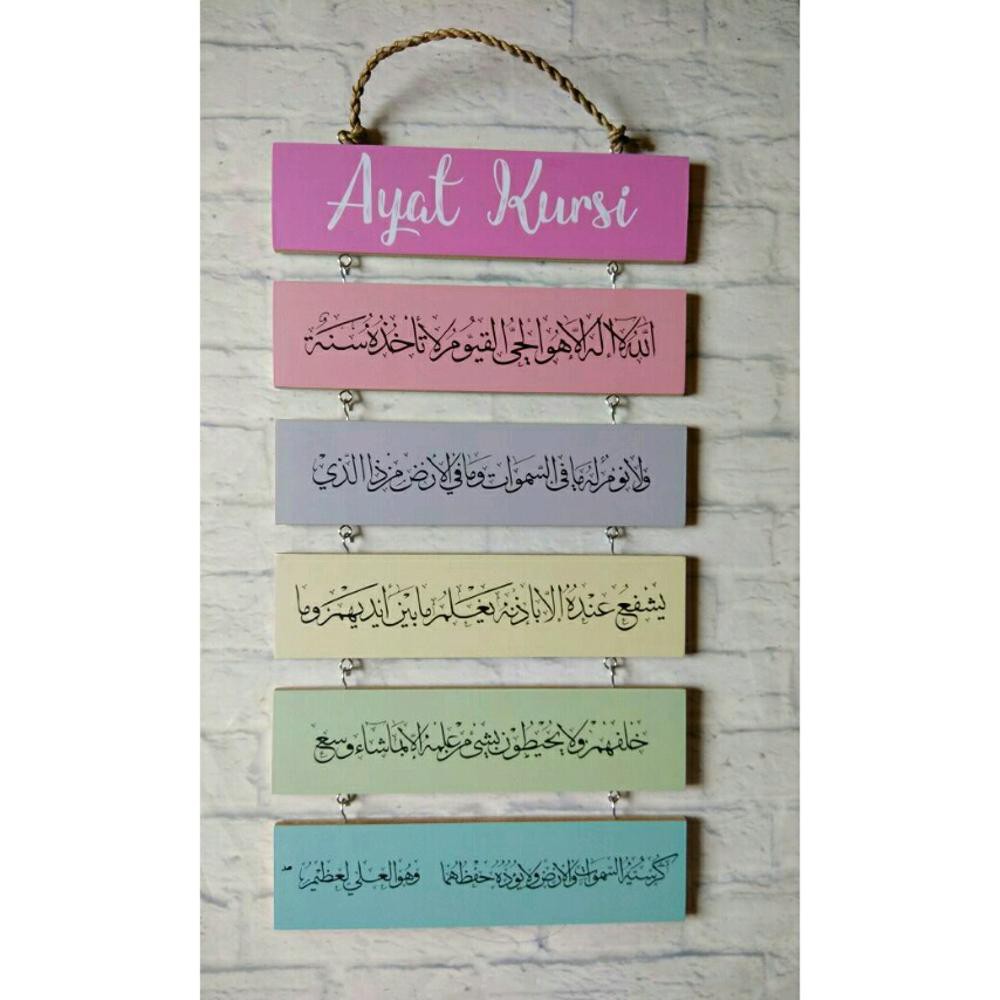 Ayat Kursi
الله لا اله الا هو الحي القيوم لا تأخذه سنة
ولا نوم له ما في السموات وما في الارض من ذا الذي
يشفع عنده الا باذنه يعلم ما بين أيديهم وما
خلفهم ولا يحيطون بشيء من علمه الا بما شاء وسع
كرسيه السموات والارض ولا يؤده حفظهما وهو العلي العظيم